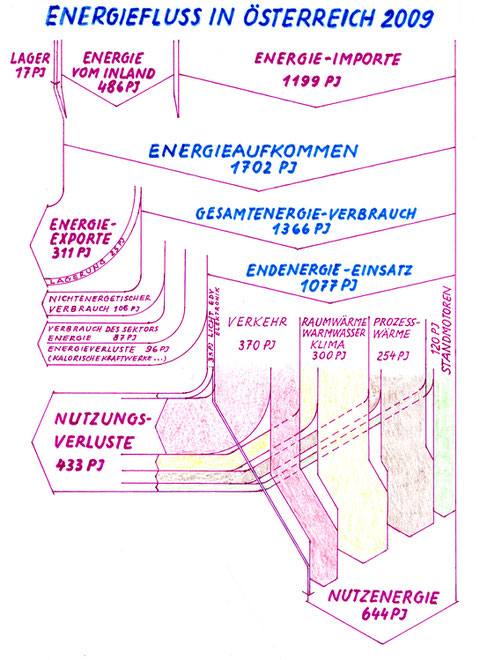 ENERGIEFLUSS IN ÖSTERREICH 2009
LAGER
17 PJ
ENERGIE
VOM INLAND
486 PJ
ENERGIE-IMPORTE
1199 PJ
ENERGIEAUFKOMMEN
1702 PJ
ENERGIE-
EXPORTE
311 PJ
LAGERUNG 25 PJ
GESAMTENERGIE-VERBRAUCH
1366 PJ
NICHTENERGETISCHER
VERBRAUCH 106 PJ
VERBRAUCH DES SEKTORS
ENERGIE 87 PJ
ENERGIEVERLUSTE 96 PJ
(KALORISCHE KRAFTWERKE...)
ENDENERGIE-EINSATZ
1077 PJ
33 PJ LICHT, EDV,
ELEKTRONIK
VERKEHR
370 PJ
RAUMWÄRME
WARMWASSER
KLIMA
300 PJ
PROZESS-
WÄRME
254 PJ
120 PJ
STANDMOTOREN
NUTZUNGS-
VERLUSTE
433 PJ
NUTZENERGIE
644 PJ